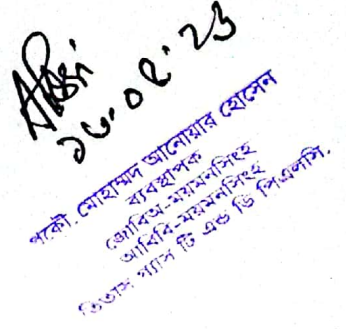 ১৬.০৫.২৩
প্রকৌ. মোহাম্মদ আনোয়ার হোসেন
ব্যবস্থাপক
জোবিঅ-ময়মনসিংহ
আবিবি-ময়মনসিংহ
তিতাস গ্যাস টি এন্ড ডি পিএলসি.